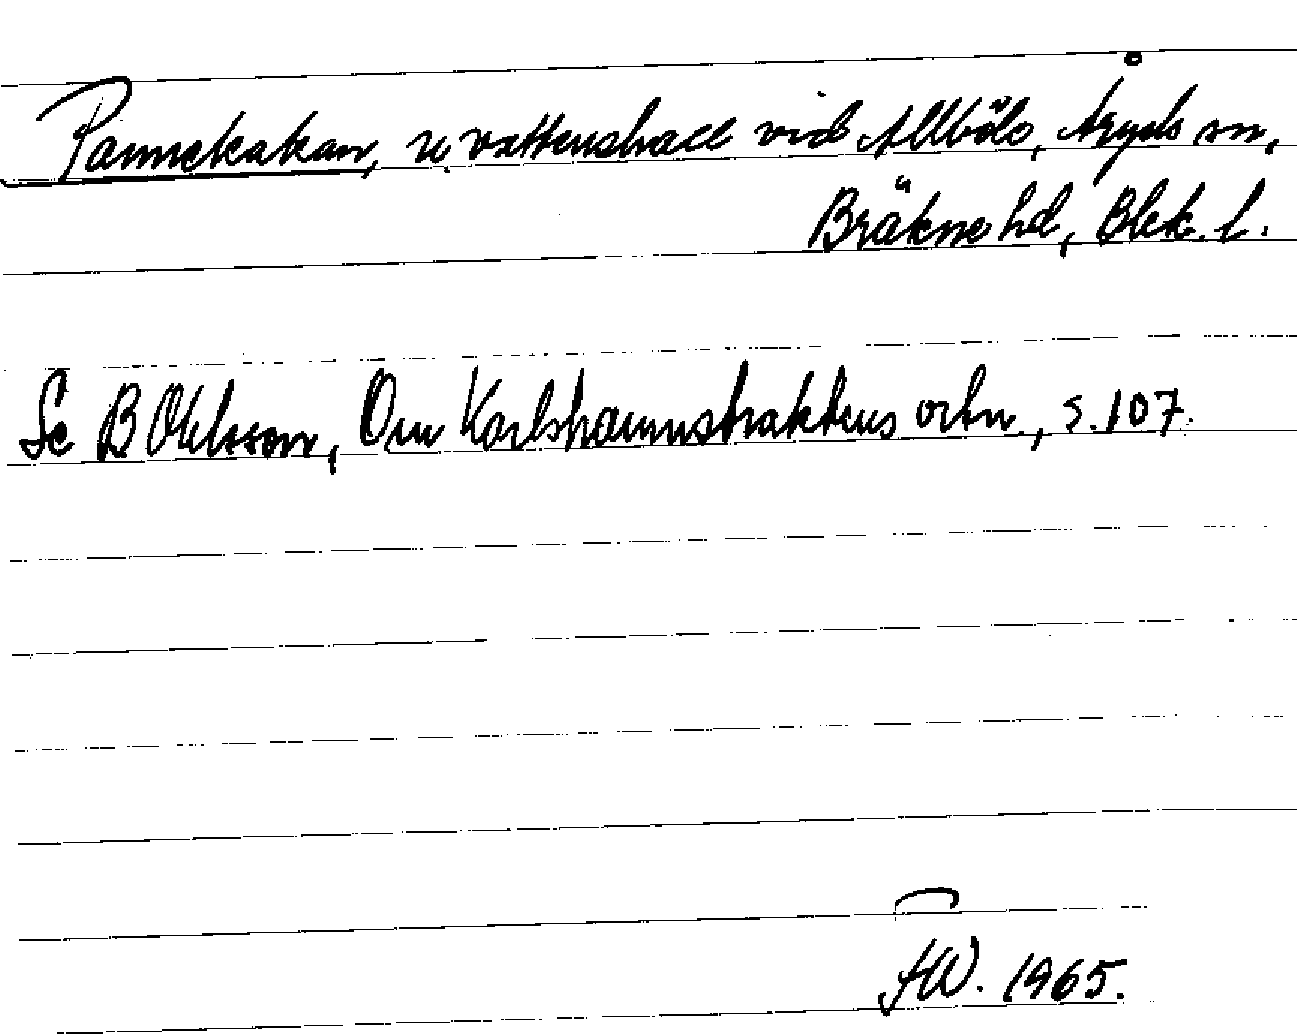 Pannekakan, vattenshall vid Allböle, Åryds sn,
Bräkne hd, Blek. l.
Se B Ohlsson, Om Karlshamnstraktens ortn, s. 107.
FW. 1965.